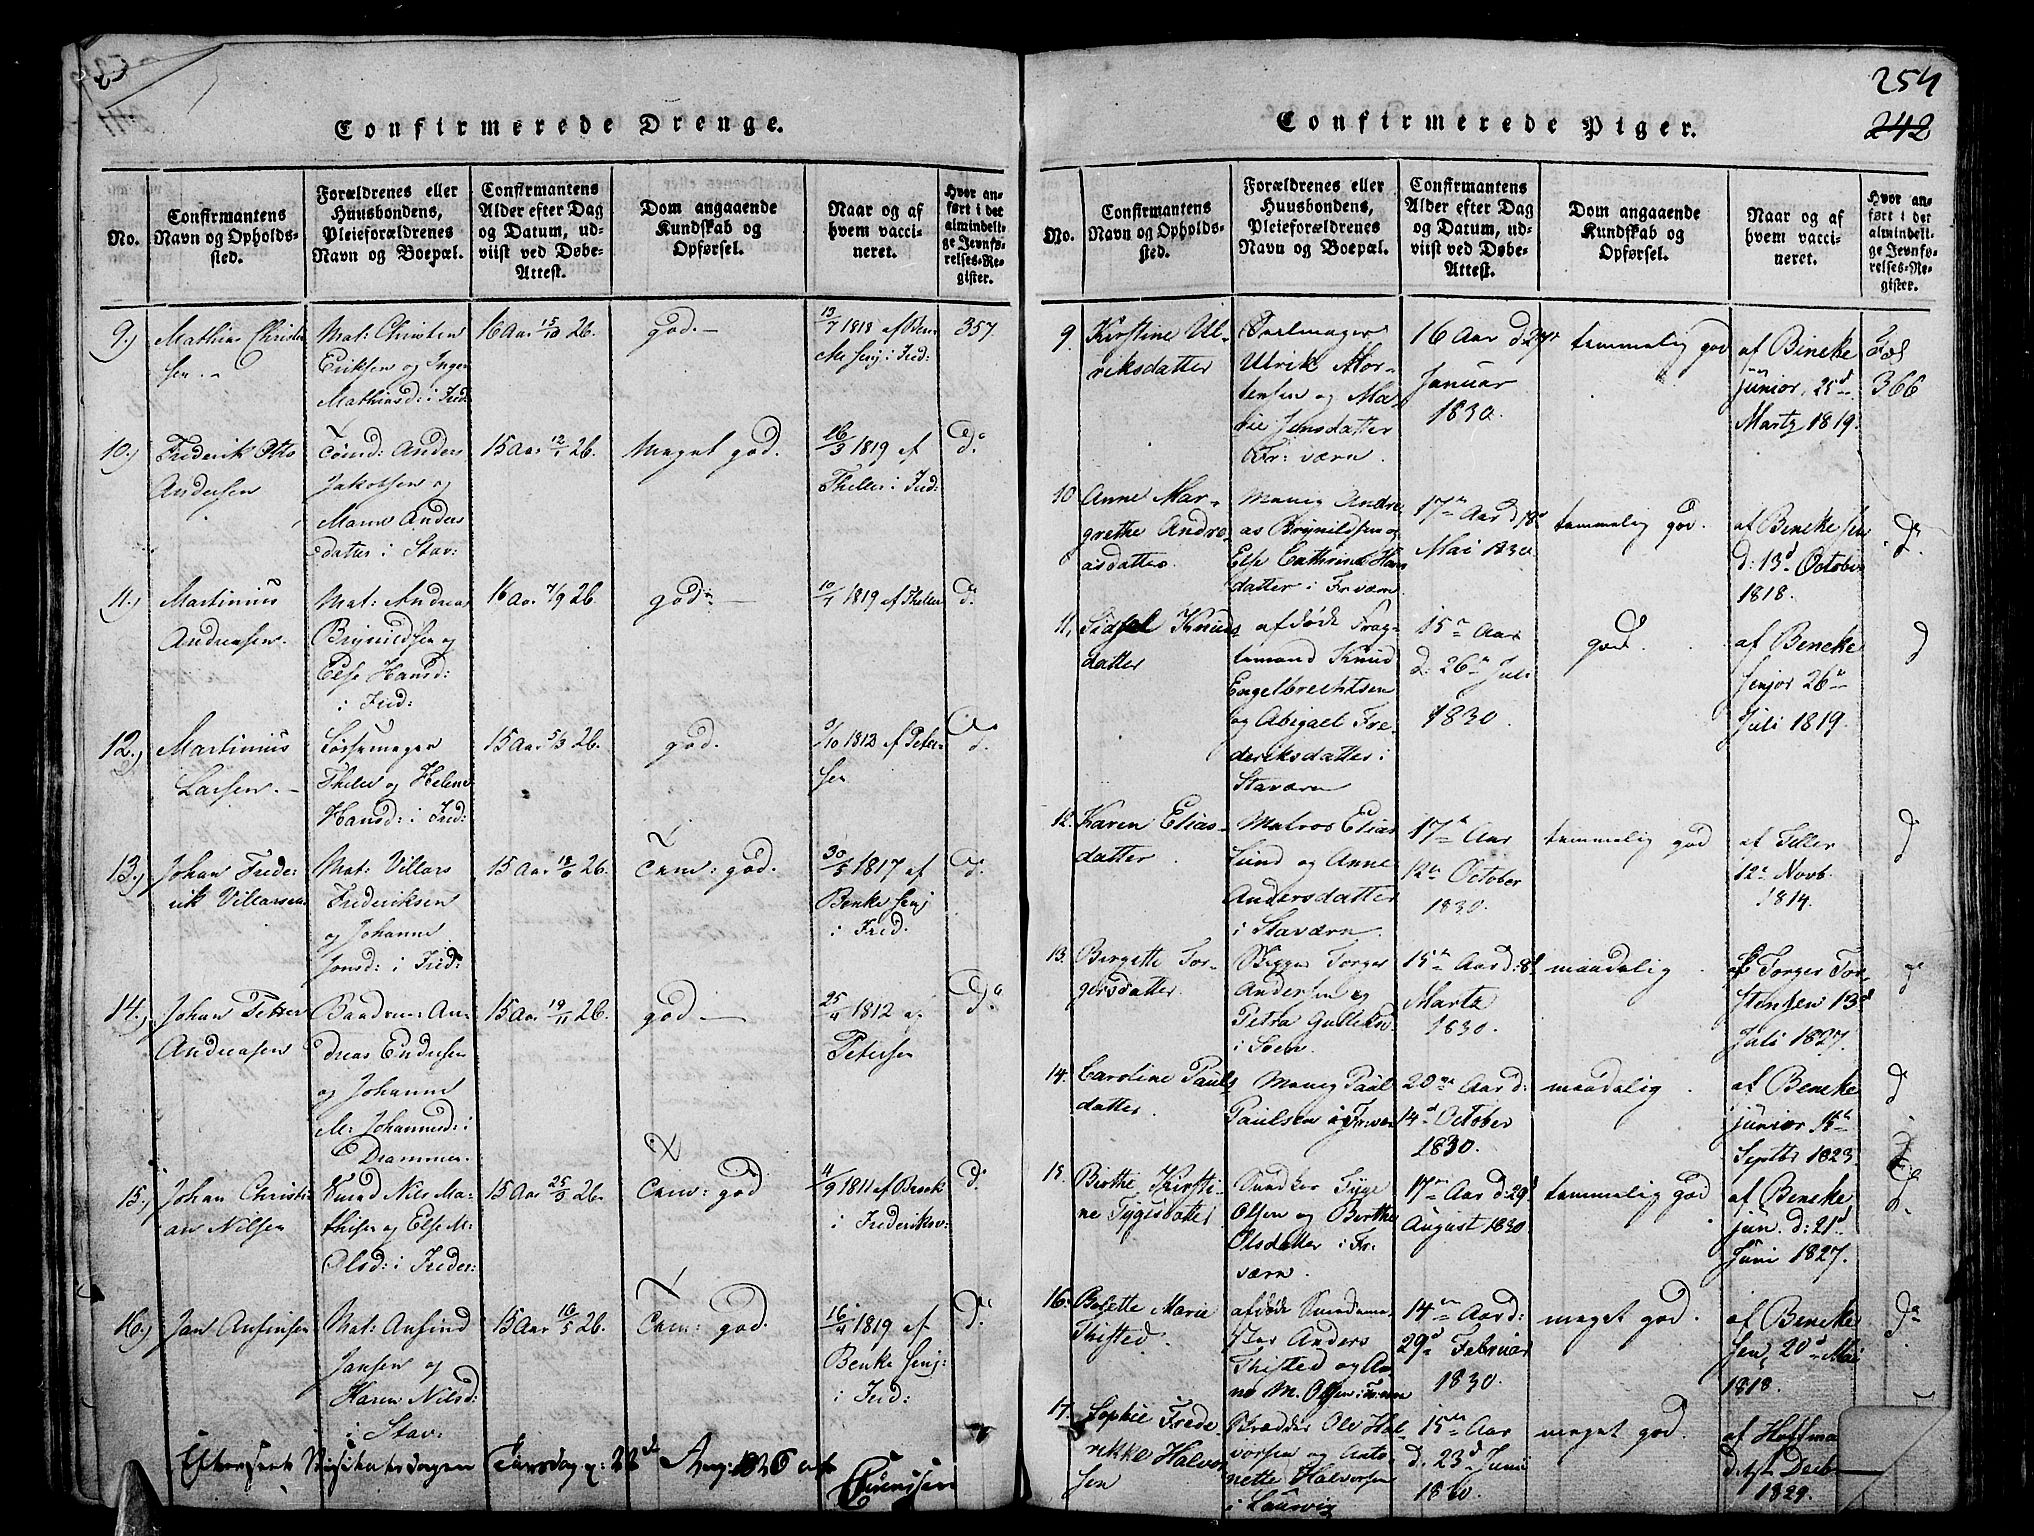 254
242
Confirmerede Drenge.
No.
Confirmantens Navn og Opholdssted.
Forældrenes eller Huusbondens, Pleieforældrenes Navn og Boepæl.
Confirmantens Alder efter Dag og Datum, udviist ved Døbe-Attest.
Dom angaaende Kundskab og Opførsel.
Naar og af hvem vaccineret.
Hvor anført i det almindelige Jevnførelses-Register.
9.) Mathias Christensen
Mat: Christen
Eriksen og Inger
Mathiasd: i Fred:
16 Aar 15/10 26.
god.
13/7 1818 af
Senj: i Fred:
357
10.) Frederik Otto
Andersen
Tømd: Anders
Jakobsen og
Maren Anders
datter i Stav:
15 Aar 12/1 26.
Meget god.
16/3 1819 af
Theller i Fred:
Do
11.) Martinius
Andreasen.
Mat: Andreas
Brynildsen og
Else Hansd:
i Fred:
16 Aar 7/9 26.
god.
10/7 1819 af Theller
d.
12.) Martinius
Larsen.
Theler og Helene
Hansd: i Fred:
15 Aar 5/3 26.
god.
9/10 1812 af Petersen
Do
13.) Johan Frederik Villarsen
Mat: Villars
Frederiksen
og Johanne
Jonsd: i Fred:
15 Aar 18/6 26.
Tem: god.
30/5 1817 af
Benke Senj
i Fred.
Do
14.) Johan Petter
Andreasen
Andreas Endresen
og Johanne
M: Johannesd: i
Drammen.
15 Aar 19/11 26.
god
25/4 1812 af
Petersen
Do
15.) Johan Christian Nilsen
Nils Mathisen og Else M:
Olsd: i Freder:
15 Aar 25/9 26.
Tem: god
4/9 1811 af
i Frederiksv:
d.
16.) Jan Anfinsen
Mat: Anfind
Jansen og
Karen Nilsd:
i Stav:
15 Aar 16/5 26.
Tem: god.
16/4 1819 af
Benke Senj:
i Fred:
Do
Efterseet Visitatsdagen Tirsdag d: 22d Aug: 1826 af
Confirmerede Piger.
No.
Confirmantens Navn og Opholdssted.
Forældrenes eller Huusbondens, Pleieforældrenes Navn og Boepæl.
Confirmantens Alder efter Dag og Datum, udviist ved Døbe-Attest.
Dom angaaende Kundskab og Opførsel.
Naar og af hvem vaccineret.
Hvor anført i det almindelige Jevnførelses-Register.
9. Kirstine Ulriksdatter
Ulrik Mortensen og Marie Jensdatter
Fr: værn.
16 Aar d: 24
Januar
1830.
temmelig god
af Bineke
junior, 25d
Martz 1819.
Fol
366
10 Anne Margrethe Andreasdatter.
Andreas Brynildsen og
Else Cathrine Hansdatter i Frværn.
17n Aar d 18d
Mai 1830.
temmelig god.
af Beneke sen
d: 13d October
1818.
do
11. Sidsel Knuds
datter
afdøde Fragtemand Knud
Engelbrechtsen
og Abigael Frederiksdatter i
Staværn
15n Aar
d. 26n Juli
1830.
god.
af Beneke
Senjor 26n
Juli 1819.
d
12. Karen Eliasdatter
Matros Elias
Lund og Anne
Andersdatter
i Staværn.
17n Aar
12n October
1830.
temmelig god
af Teller
12n Novb.
1814.
d
13. Bergette Torgersdatter
Torger
Andersen og
Petra Gulleksd
15n Aar d: 8d
Martz
1830.
maadelig
af Torger Torstensen 13d
Juli 1827.
14. Caroline Pauls
datter
Paul
Paulsen i Frværn
20n Aar d:
14d October
1830.
maadelig
af Beneke
junior 15n
Septbr 1823.
d
15. Birthe Kirstine Tygisdatter
Tyge
Olsen og Berthe
Olsdatter i Fr:
værn.
17n Aar d: 29d
August 1830
temmelig god
af Beneke
jun. d: 21d
Juni 1827.
16. Bolette Marie
Thisted.
afdøde
Anders
Thisted og Anne M. Olsen i Frværn
14n Aar d:
29d Februar
1830.
meget god.
af Beneke
Sen, 20d Mai
1818.
do
17. Sophie Frederikke Halvorsen
Ole Halvorsen og Antonette Halvorsen
i Laurvig
15n Aar
d. 23d Juni
1830.
meget god.
af Hoffma
d. 1st Decbr
1829.